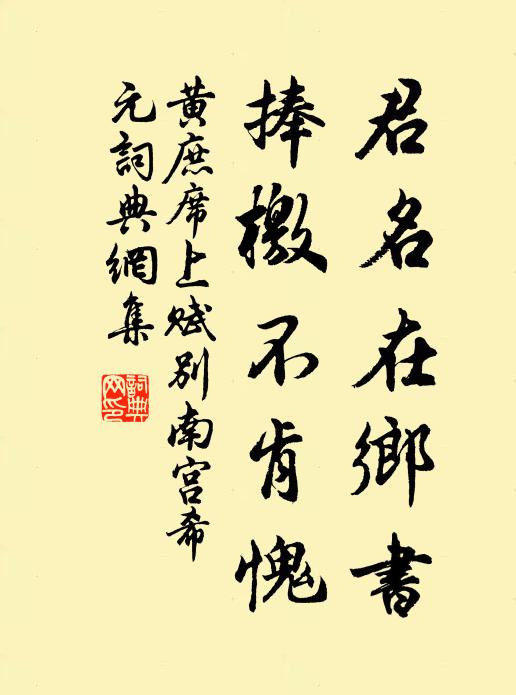 君名在鄉書
捧檄不肯愧
黃庶席上賦别南宫希
元詞典網集
詞典網印